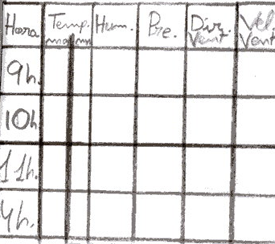 Hora Temp. Hum. Pre. Dir. Vel.
max min Vent. Vent
9h.
10h
11h.
4h.